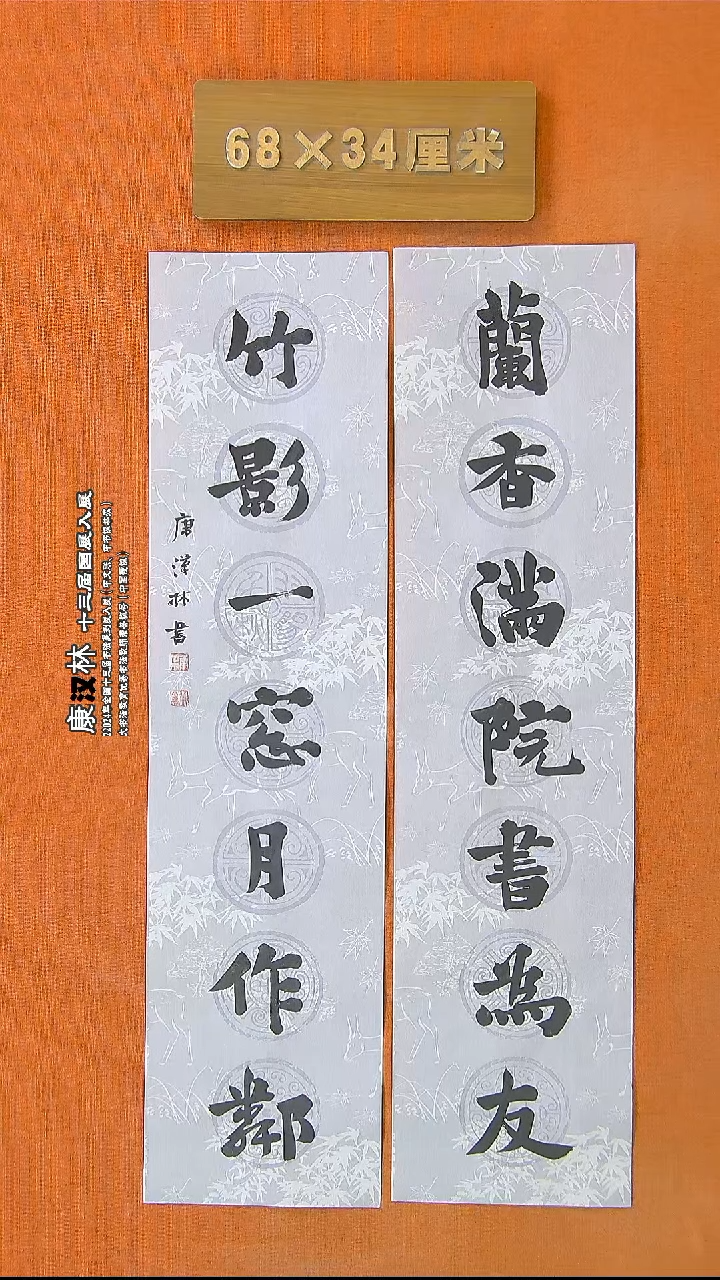 68×34厘米
蘭香滿院書為友
竹影一窓月作鄰
康漢林書
康汉林 十三届国展入展